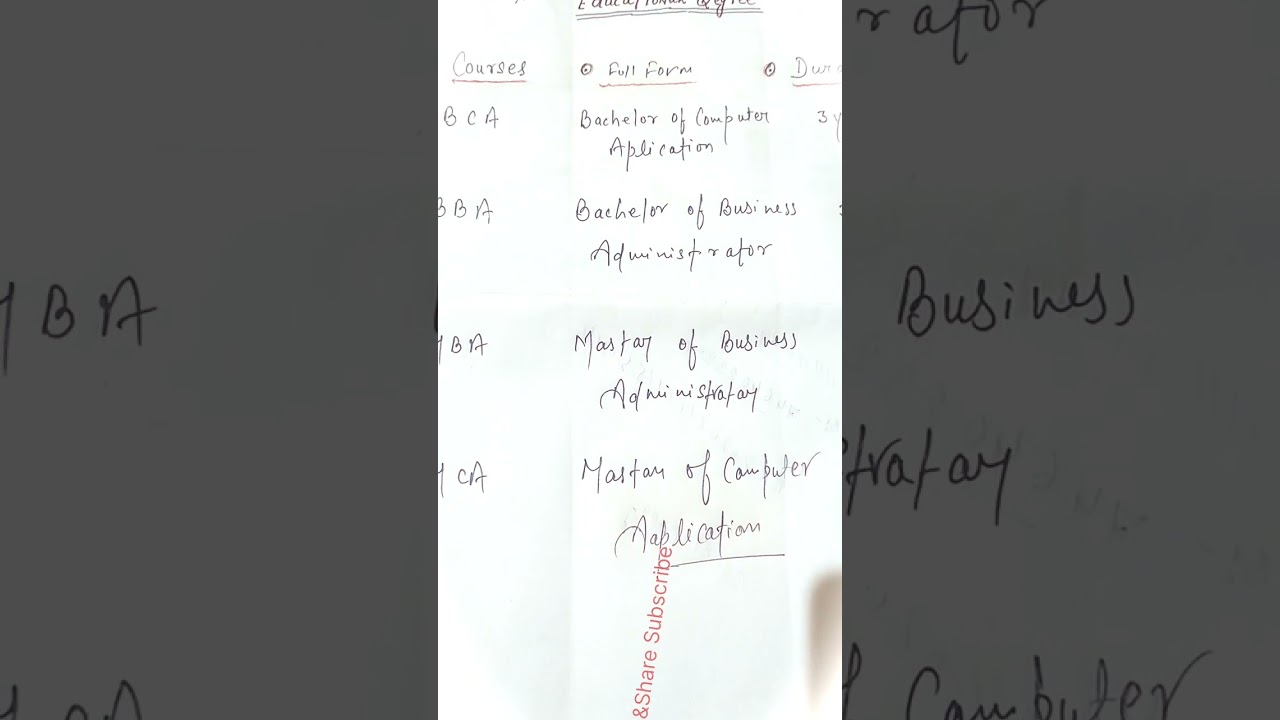 Educational Degree
Courses Full Form Dur
BCA Bachelor of Computer 3 y
Aplication
BBA Bachelor of Business
Administrator
MBA Mastar of Business
Administratay
MCA Mastar of Computer
Aaplication
&Share Subscribe